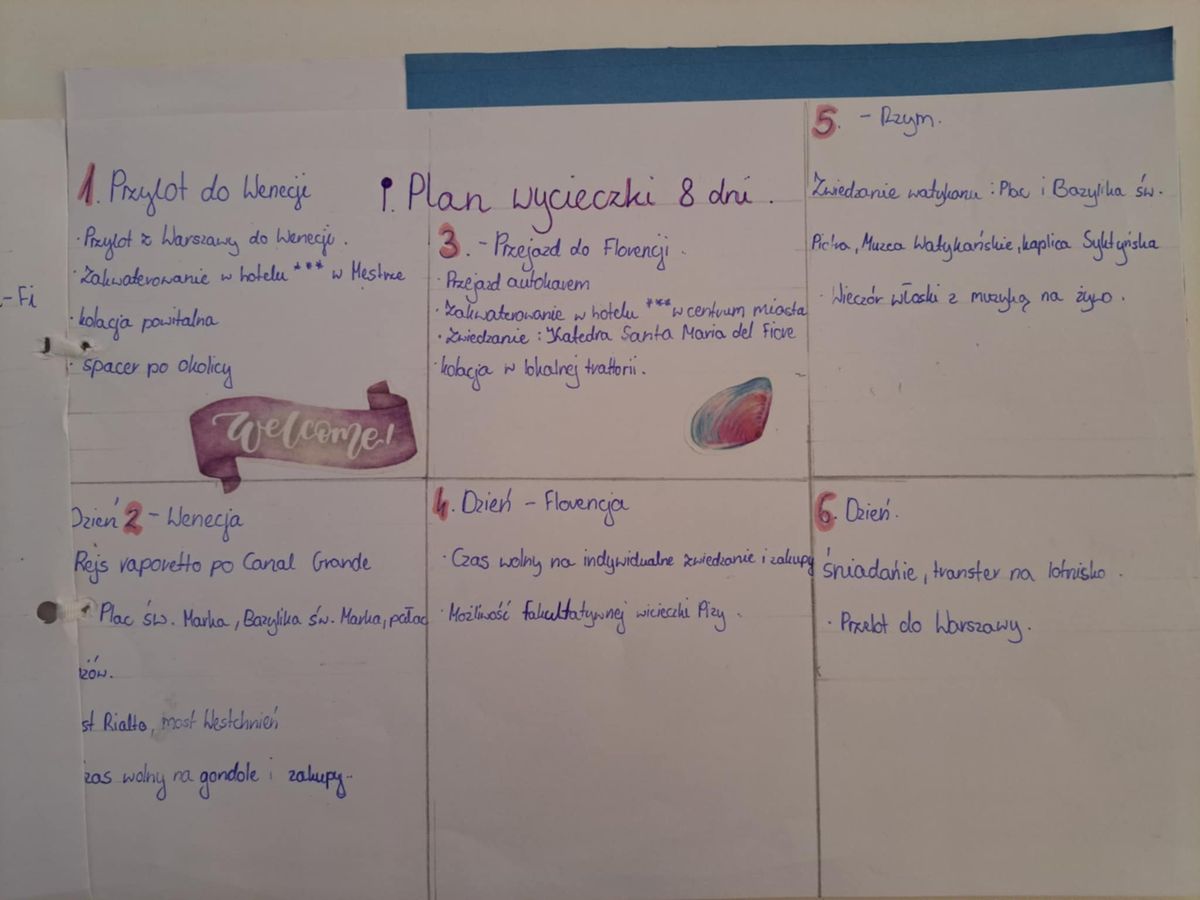 -Fi
Plan wycieczki 8 dni.
1. Przylot do Wenecji
· Przylot z Warszawy do Wenecji.
· Zakwaterowanie w hotelu *** w Mestrze
· kolacja powitalna
· spacer po okolicy
Welcome!
Dzień 2 - Wenecja
Rejs vaporetto po Canal Grande
Plac św. Marka, Bazylika św. Marka, pałac
żów.
st Rialto, most Westchnień
zas wolny na gondole i zakupy.
3. - Przejazd do Florencji.
· Przejazd autokarem
· Zakwaterowanie w hotelu *** w centrum miasta
· Zwiedzanie : Katedra Santa Maria del Fiore
· kolacja w lokalnej trattorii.
4. Dzień - Florencja
· Czas wolny na indywidualne zwiedzanie i zakupy
· Możliwość fakultatywnej wicieczki Pizy.
5. - Rzym.
Zwiedzanie watykanu : Plac i Bazylika św.
Piotra, Muzea Watykańskie, kaplica Syktyńska
· Wieczór włoski z muzyką na żywo.
6. Dzień.
śniadanie, transfer na lotnisko.
· Przelot do Warszawy.